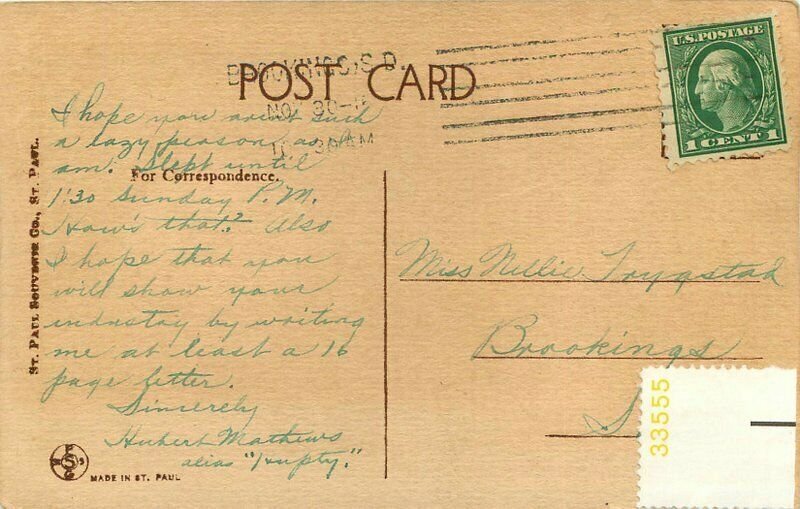 POST CARD
BROOKINGS, S.D.
NO 30
11 30 AM
U.S. POSTAGE
1 CENT 1
For Correspondence.
I hope you aren't such
a lazy person as I
am. Slept until
1:30 Sunday P.M.
How's that? Also
I hope that you
will show your
industry by writing
me at least a 16
page letter.
Sincerely
Hubert Mathews
alias "Hupty."
Miss Nellie Trygstad
Brookings
S
33555
ST. PAUL SOUVENIR CO., ST. PAUL.
MADE IN ST. PAUL